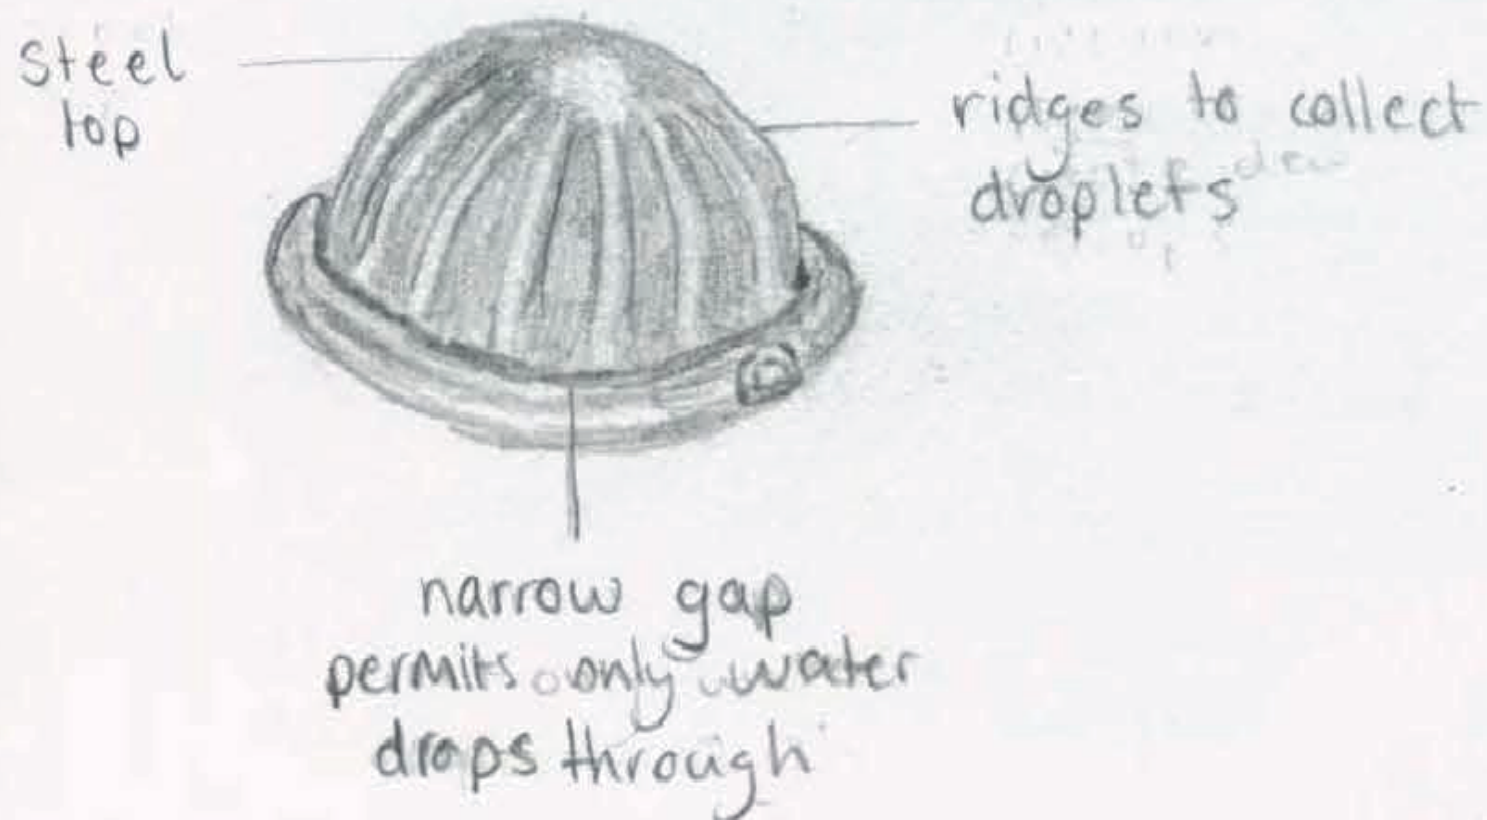 Steel
top
ridges to collect
droplets dew
narrow gap
permits only water
drops through